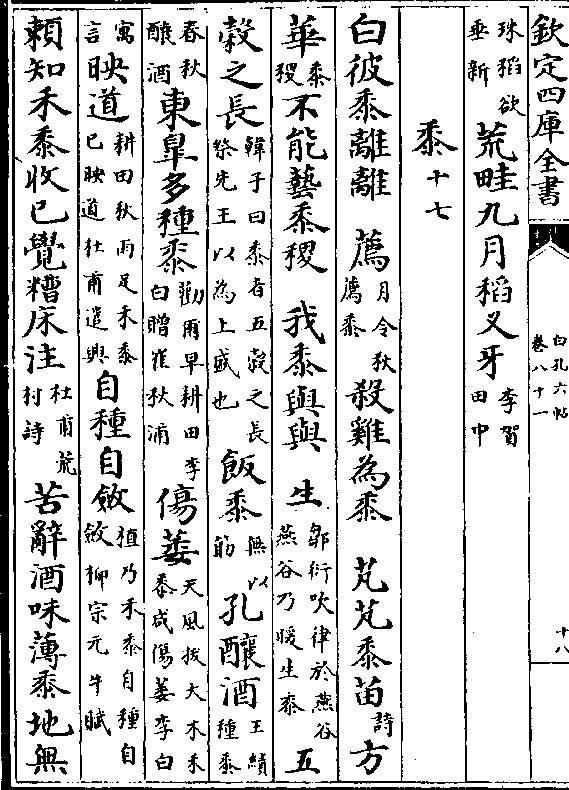 欽定四庫全書
白孔六帖
卷八十一
十八
珠稻欲
垂新
荒畦九月稻义牙
李賀
田中
黍十七
白彼黍離離
薦
月令秋
薦黍
殺雞為黍
芃芃黍苗
詩
方
華
黍
稷
不能藝黍稷
我黍與與
生
鄒衍吹律於燕谷
燕谷乃暖生黍
五
榖之長
韓子曰黍者五榖之長
祭先王以為上盛也
飯黍
無以
筯
孔釀酒
王績
種黍
春秋
釀酒
東臯多種黍
勸爾早耕田李
白贈崔秋浦
傷萎
天風拔大木禾
黍咸傷萎李白
寓
言
映道
耕田秋雨足禾黍
已映道杜甫遣興
自種自斂
植乃禾黍自種自
斂柳宗元牛賦
頼知禾黍收已覺糟床注
杜甫羌
村詩
苦辭酒味薄黍地無